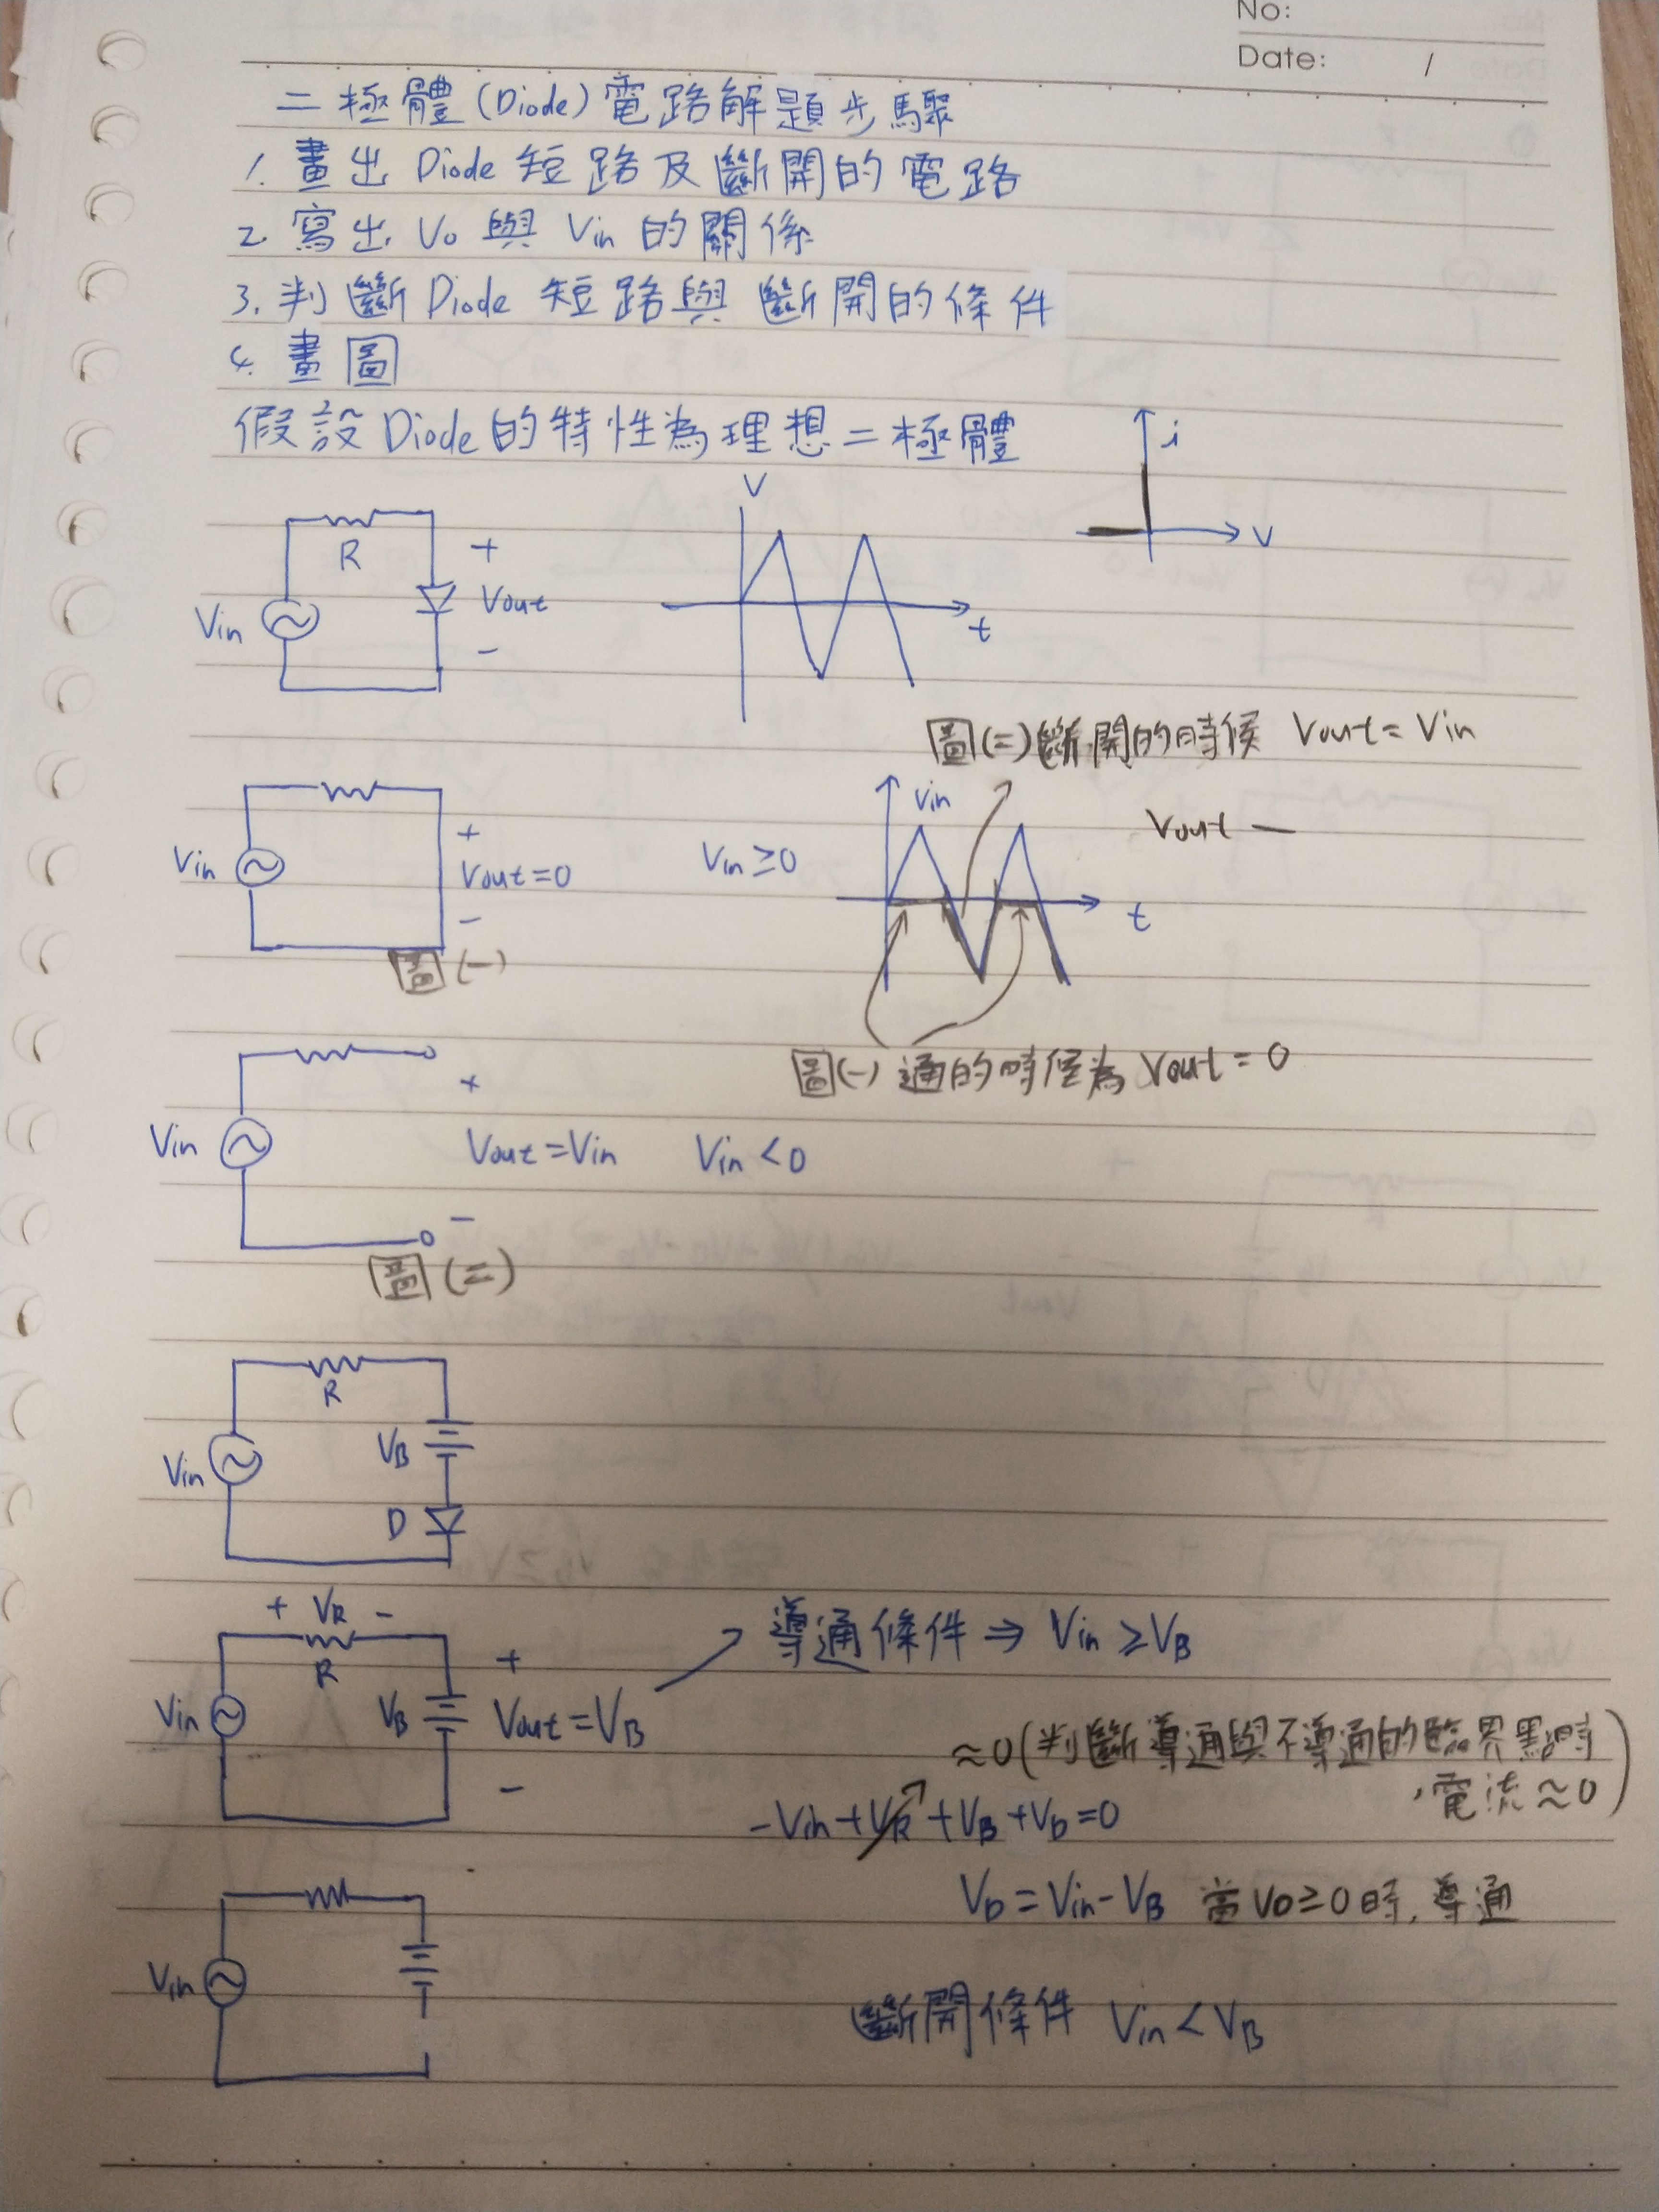 No:
Date: /
二極體(Diode)電路解題步驟
1. 畫出 Diode 短路及斷開的電路
2. 寫出 Vo 與 Vin 的關係
3. 判斷 Diode 短路與斷開的條件
4. 畫圖
假設 Diode 的特性為理想二極體
i
V
R
+
Vout
-
Vin
V
t
圖(二)斷開的時候 Vout = Vin
Vin
+
Vout = 0
-
圖(一)
Vin ≥ 0
Vin
t
Vout —
圖(一) 通的時候為 Vout = 0
Vin
+
Vout = Vin
-
Vin < 0
圖(二)
R
Vin
VB
D
+ VR -
R
Vin
VB
+
Vout = VB
-
導通條件 ⇒ Vin ≥ VB
≈0(判斷導通與不導通的臨界點時
,電流≈0)
-Vin + VR + VB + VD = 0
VD = Vin - VB 當 VD ≥ 0 時, 導通
Vin
斷開條件 Vin < VB